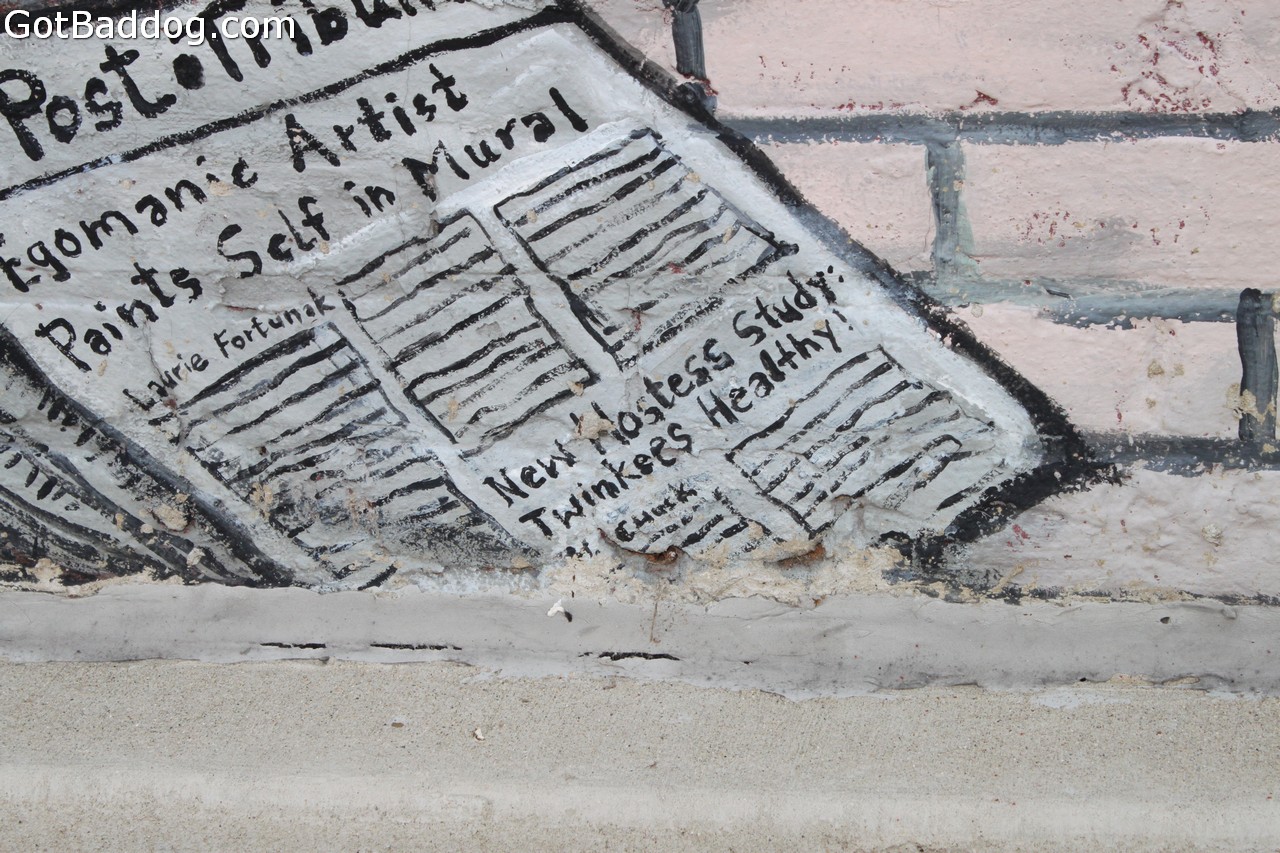 GotBaddog.com
Post-Tribun
Egomanic Artist
Paints Self in Mural
Laurie Fortunak
New Hostess Study:
Twinkees Healthy!
Chuck